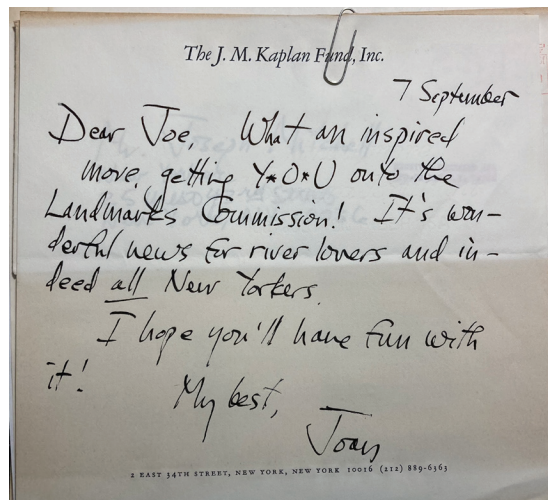 The J. M. Kaplan Fund, Inc.
7 September
Dear Joe, What an inspired
move, getting Y*O*U onto the
Landmarks Commission! It's won-
derful news for river lovers and in-
deed all New Yorkers.
I hope you'll have fun with
it!
My best,
Joan
2 EAST 34TH STREET, NEW YORK, NEW YORK 10016 (212) 889-6363